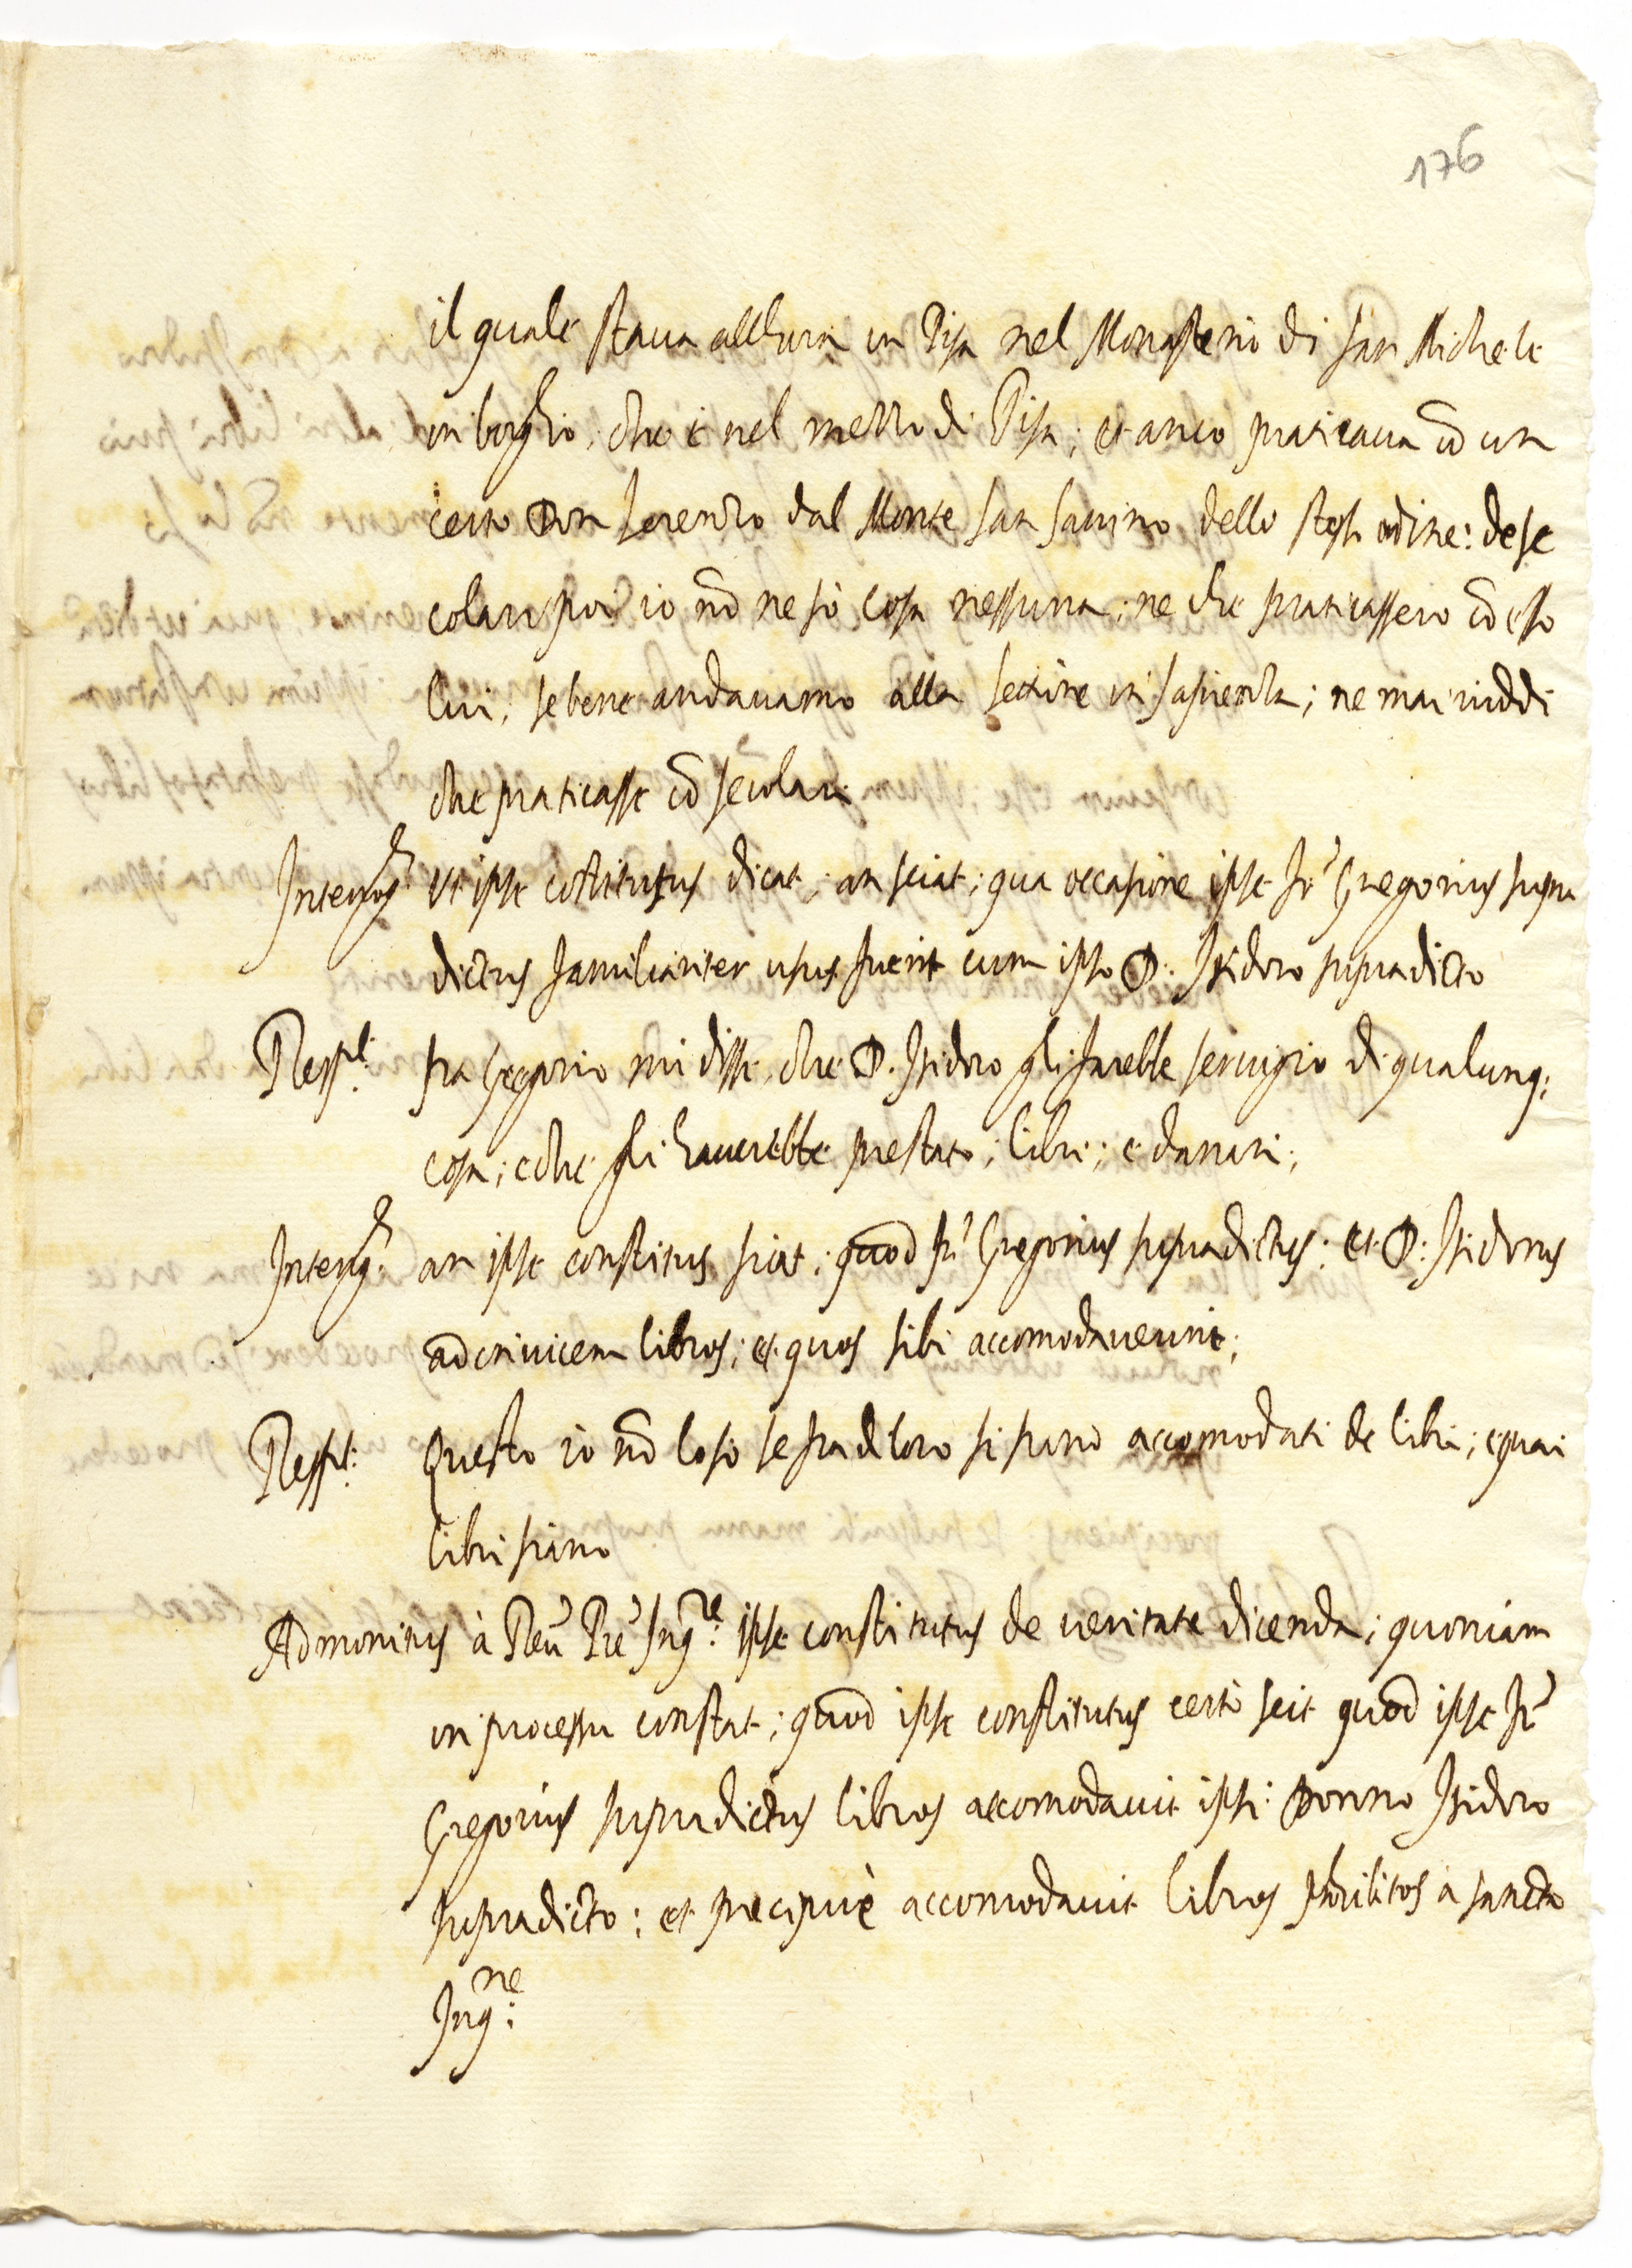 176
il quale staua allhora in Pisa nel Monasterio di San Michele
in borgho, che è nel mezzo di Pisa; et anco praticaua cō un
certo Don Lorenzo dal Monte San Sauino dello stesso ordine: de se
colari poi io nō ne sò cosa nessuna; ne che praticassero cō esso
lui; se bene andauamo alla lettione in sapienza; ne mai uiddi
che praticasse cō secolari
Interrog: Ut ipse cōstitutus dicat; an sciat; qua occasione ipse fr̃ Gregorius supra
dictus familiariter usus fuerit cum ipso D: Isidoro supradicto
Resp.t: fra Gregorio mi disse, che D. Isidoro gli farebbe seruigio di qualunq;
cosa; e che gli hauerebbe prestato; libri; e danari;
Interrog: an ipse constitus sciat; quod fr̃ Gregorius supradictus; et D: Isidorus
ad inuicem libros; et quos sibi accomodauerint;
Resp.t: Questo io nō lo so se fra di loro si siano accomodati de libri; e quai
libri siano
Admonitus à Reu. Pre Inq.re ipse constitutus de ueritate dicenda; quoniam
in processu constat; quod ipse constitutus certò scit quod ipse fr̃
Gregorius supradictus libros accomodauit ipsi: Donno Isidoro
supradicto; et precipuè accomodauit libros phibitos à sancta
Inq.ne: